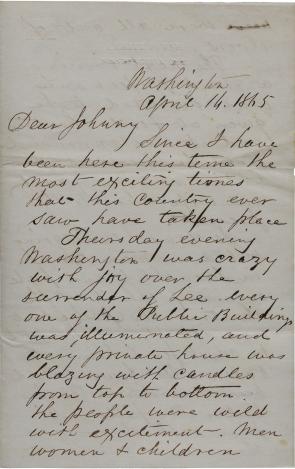 Washington
April 14. 1865
Dear Johnny
Since I have
been here this time the
most exciting times
that this country ever
saw have taken place
Thursday evening
Washington was crazy
with joy over the
surrender of Lee. Every
one of the Public Buildings
was illuminated, and
every private house was
blazing with candles
from top to bottom.
the people were wild
with excitement. Men
women & children